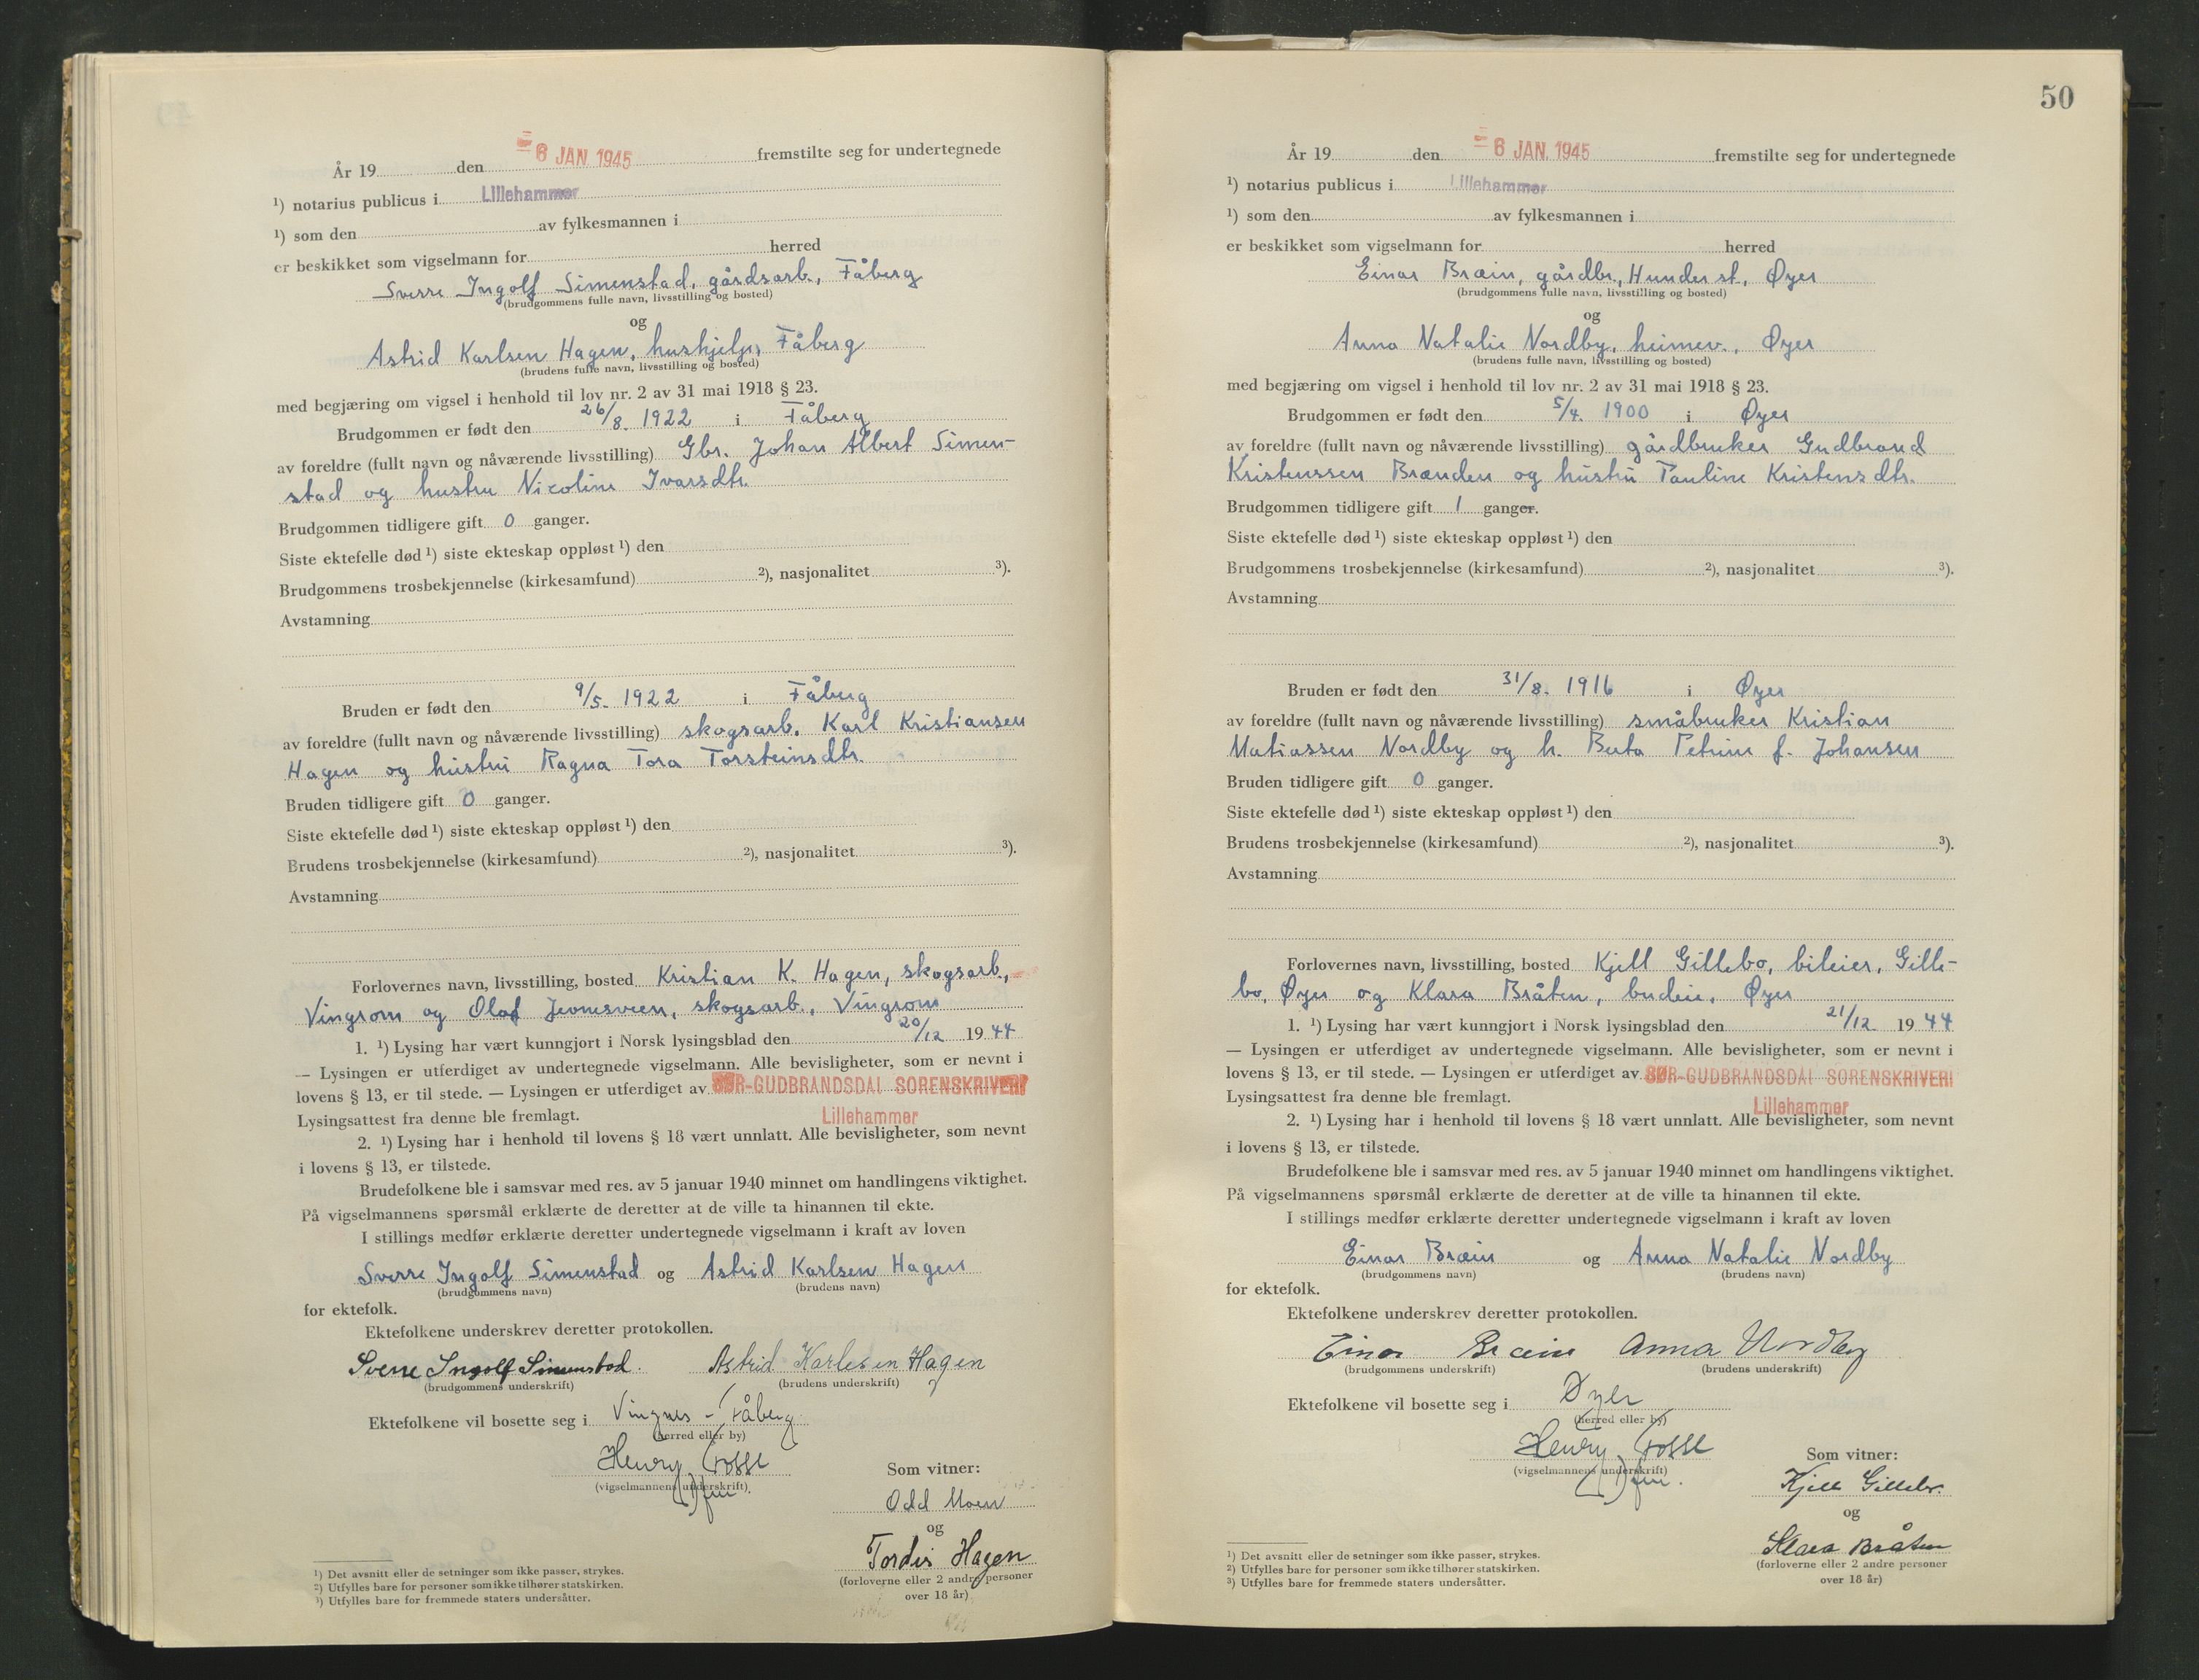 År 19 den - 6 JAN. 1945 fremstilte seg for undertegnede
¹) notarius publicus i Lillehammer
¹) som den av fylkesmannen i
er beskikket som vigselmann for herred
Sverre Ingolf Simenstad, gårdsarb., Fåberg
(brudgommens fulle navn, livsstilling og bosted)
og
Astrid Karlsen Hagen, hushjelp, Fåberg
(brudens fulle navn, livsstilling og bosted)
med begjæring om vigsel i henhold til lov nr. 2 av 31 mai 1918 § 23.
Brudgommen er født den 26/8. 1922 i Fåberg
av foreldre (fullt navn og nåværende livsstilling) Gbr. Johan Albert Simen-
stad og hustru Nicoline Ivarsdtr.
Brudgommen tidligere gift 0 ganger.
Siste ektefelle død ¹) siste ekteskap oppløst ¹) den
Brudgommens trosbekjennelse (kirkesamfund) ²), nasjonalitet ³).
Avstamning
Bruden er født den 9/5. 1922 i Fåberg
av foreldre (fullt navn og nåværende livsstilling) skogsarb. Karl Kristiansen
Hagen og hustru Ragna Tora Torsteinsdtr.
Bruden tidligere gift 0 ganger.
Siste ektefelle død ¹) siste ekteskap oppløst ¹) den
Brudens trosbekjennelse (kirkesamfund) ²), nasjonalitet ³).
Avstamning
Forlovernes navn, livsstilling, bosted Kristian K. Hagen, skogsarb.,
Vingrom og Olaf Jevnesveen, skogsarb., Vingrom
1. ¹) Lysing har vært kunngjort i Norsk lysingsblad den 20/12 1944
— Lysingen er utferdiget av undertegnede vigselmann. Alle bevisligheter, som er nevnt i
lovens § 13, er til stede. — Lysingen er utferdiget av SØR-GUDBRANDSDAL SORENSKRIVERI
Lysingsattest fra denne ble fremlagt. Lillehammer
2. ¹) Lysing har i henhold til lovens § 18 vært unnlatt. Alle bevisligheter, som nevnt
i lovens § 13, er tilstede.
Brudefolkene ble i samsvar med res. av 5 januar 1940 minnet om handlingens viktighet.
På vigselmannens spørsmål erklærte de deretter at de ville ta hinannen til ekte.
I stillings medfør erklærte deretter undertegnede vigselmann i kraft av loven
Sverre Ingolf Simenstad og Astrid Karlsen Hagen
(brudgommens navn) (brudens navn)
for ektefolk.
Ektefolkene underskrev deretter protokollen.
Sverre Ingolf Simenstad. Astrid Karlsen Hagen
(brudgommens underskrift) (brudens underskrift)
Ektefolkene vil bosette seg i Vingnes - Fåberg
(herred eller by)
Henry
(vigselmannens underskrift)
Som vitner:
Odd Moen
og
Tordis Hagen
(forloverne eller 2 andre personer
over 18 år)
¹) Det avsnitt eller de setninger som ikke passer, strykes.
²) Utfylles bare for personer som ikke tilhører statskirken.
³) Utfylles bare for fremmede staters undersåtter.
50
År 19 den - 6 JAN. 1945 fremstilte seg for undertegnede
¹) notarius publicus i Lillehammer
¹) som den av fylkesmannen i
er beskikket som vigselmann for herred
Einar Bræin, gårdbr., Hunder st., Øyer
(brudgommens fulle navn, livsstilling og bosted)
og
Anna Natalie Nordby, heimev., Øyer
(brudens fulle navn, livsstilling og bosted)
med begjæring om vigsel i henhold til lov nr. 2 av 31 mai 1918 § 23.
Brudgommen er født den 5/4. 1900 i Øyer
av foreldre (fullt navn og nåværende livsstilling) gårdbruker Gudbrand
Kristenssen Brænden og hustru Pauline Kristensdtr.
Brudgommen tidligere gift 1 ganger.
Siste ektefelle død ¹) siste ekteskap oppløst ¹) den
Brudgommens trosbekjennelse (kirkesamfund) ²), nasjonalitet ³).
Avstamning
Bruden er født den 31/8. 1916 i Øyer
av foreldre (fullt navn og nåværende livsstilling) småbruker Kristian
Matiassen Nordby og h. Berta Petrine f. Johansen
Bruden tidligere gift 0 ganger.
Siste ektefelle død ¹) siste ekteskap oppløst ¹) den
Brudens trosbekjennelse (kirkesamfund) ²), nasjonalitet ³).
Avstamning
Forlovernes navn, livsstilling, bosted Kjell Gillebo, bileier, Gille-
bo, Øyer og Klara Bråten, budeie, Øyer
1. ¹) Lysing har vært kunngjort i Norsk lysingsblad den 21/12 1944
— Lysingen er utferdiget av undertegnede vigselmann. Alle bevisligheter, som er nevnt i
lovens § 13, er til stede. — Lysingen er utferdiget av SØR-GUDBRANDSDAL SORENSKRIVERI
Lysingsattest fra denne ble fremlagt. Lillehammer
2. ¹) Lysing har i henhold til lovens § 18 vært unnlatt. Alle bevisligheter, som nevnt
i lovens § 13, er tilstede.
Brudefolkene ble i samsvar med res. av 5 januar 1940 minnet om handlingens viktighet.
På vigselmannens spørsmål erklærte de deretter at de ville ta hinannen til ekte.
I stillings medfør erklærte deretter undertegnede vigselmann i kraft av loven
Einar Bræin og Anna Natalie Nordby
(brudgommens navn) (brudens navn)
for ektefolk.
Ektefolkene underskrev deretter protokollen.
Einar Bræin Anna Nordby
(brudgommens underskrift) (brudens underskrift)
Ektefolkene vil bosette seg i Øyer
(herred eller by)
Henry
(vigselmannens underskrift)
Som vitner:
Kjell Gillebo.
og
Klara Bråten
(forloverne eller 2 andre personer
over 18 år)
¹) Det avsnitt eller de setninger som ikke passer, strykes.
²) Utfylles bare for personer som ikke tilhører statskirken.
³) Utfylles bare for fremmede staters undersåtter.